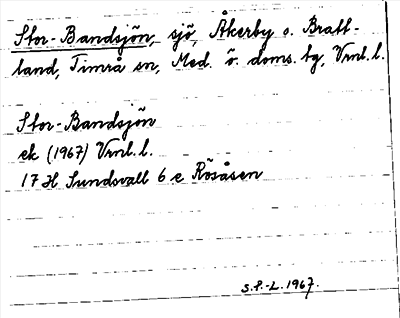 Stor-Bandsjön, sjö, Åkerby o. Bratt-
land, Timrå sn, Med. ö. doms. tg, Vrnl. l.
Stor-Bandsjön
ek (1967) Vrnl. l.
17 H Sundsvall 6 e Rösåsen
S.P.-L. 1967.